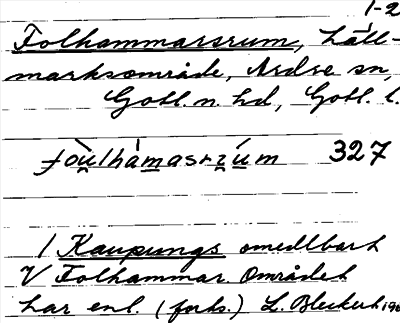 1-2
Folhammarsrum, Lätt-
marksområde, Ardre sn,
Gotl. n. hd, Gotl. l.
foùlhámasrzúm 327
/ Kaupungs omedlbart
V Folhammar. Området
har enl. (forks.) L. Bleckerh